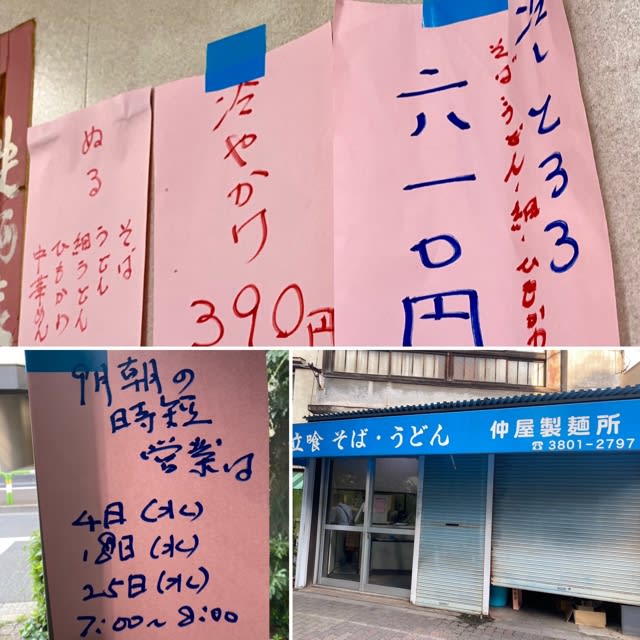 冷しとろろ
そばうどん・細・ひもかわ
六一〇円
冷やかけ
390円
ぬる
そば
うどん
細うどん
ひもかわ
中華めん
9月朝の
時短
営業は
4日(水)
18日(水)
25日(水)
7:00〜8:00
立喰 そば・うどん 仲屋製麺所
☎3801-2797